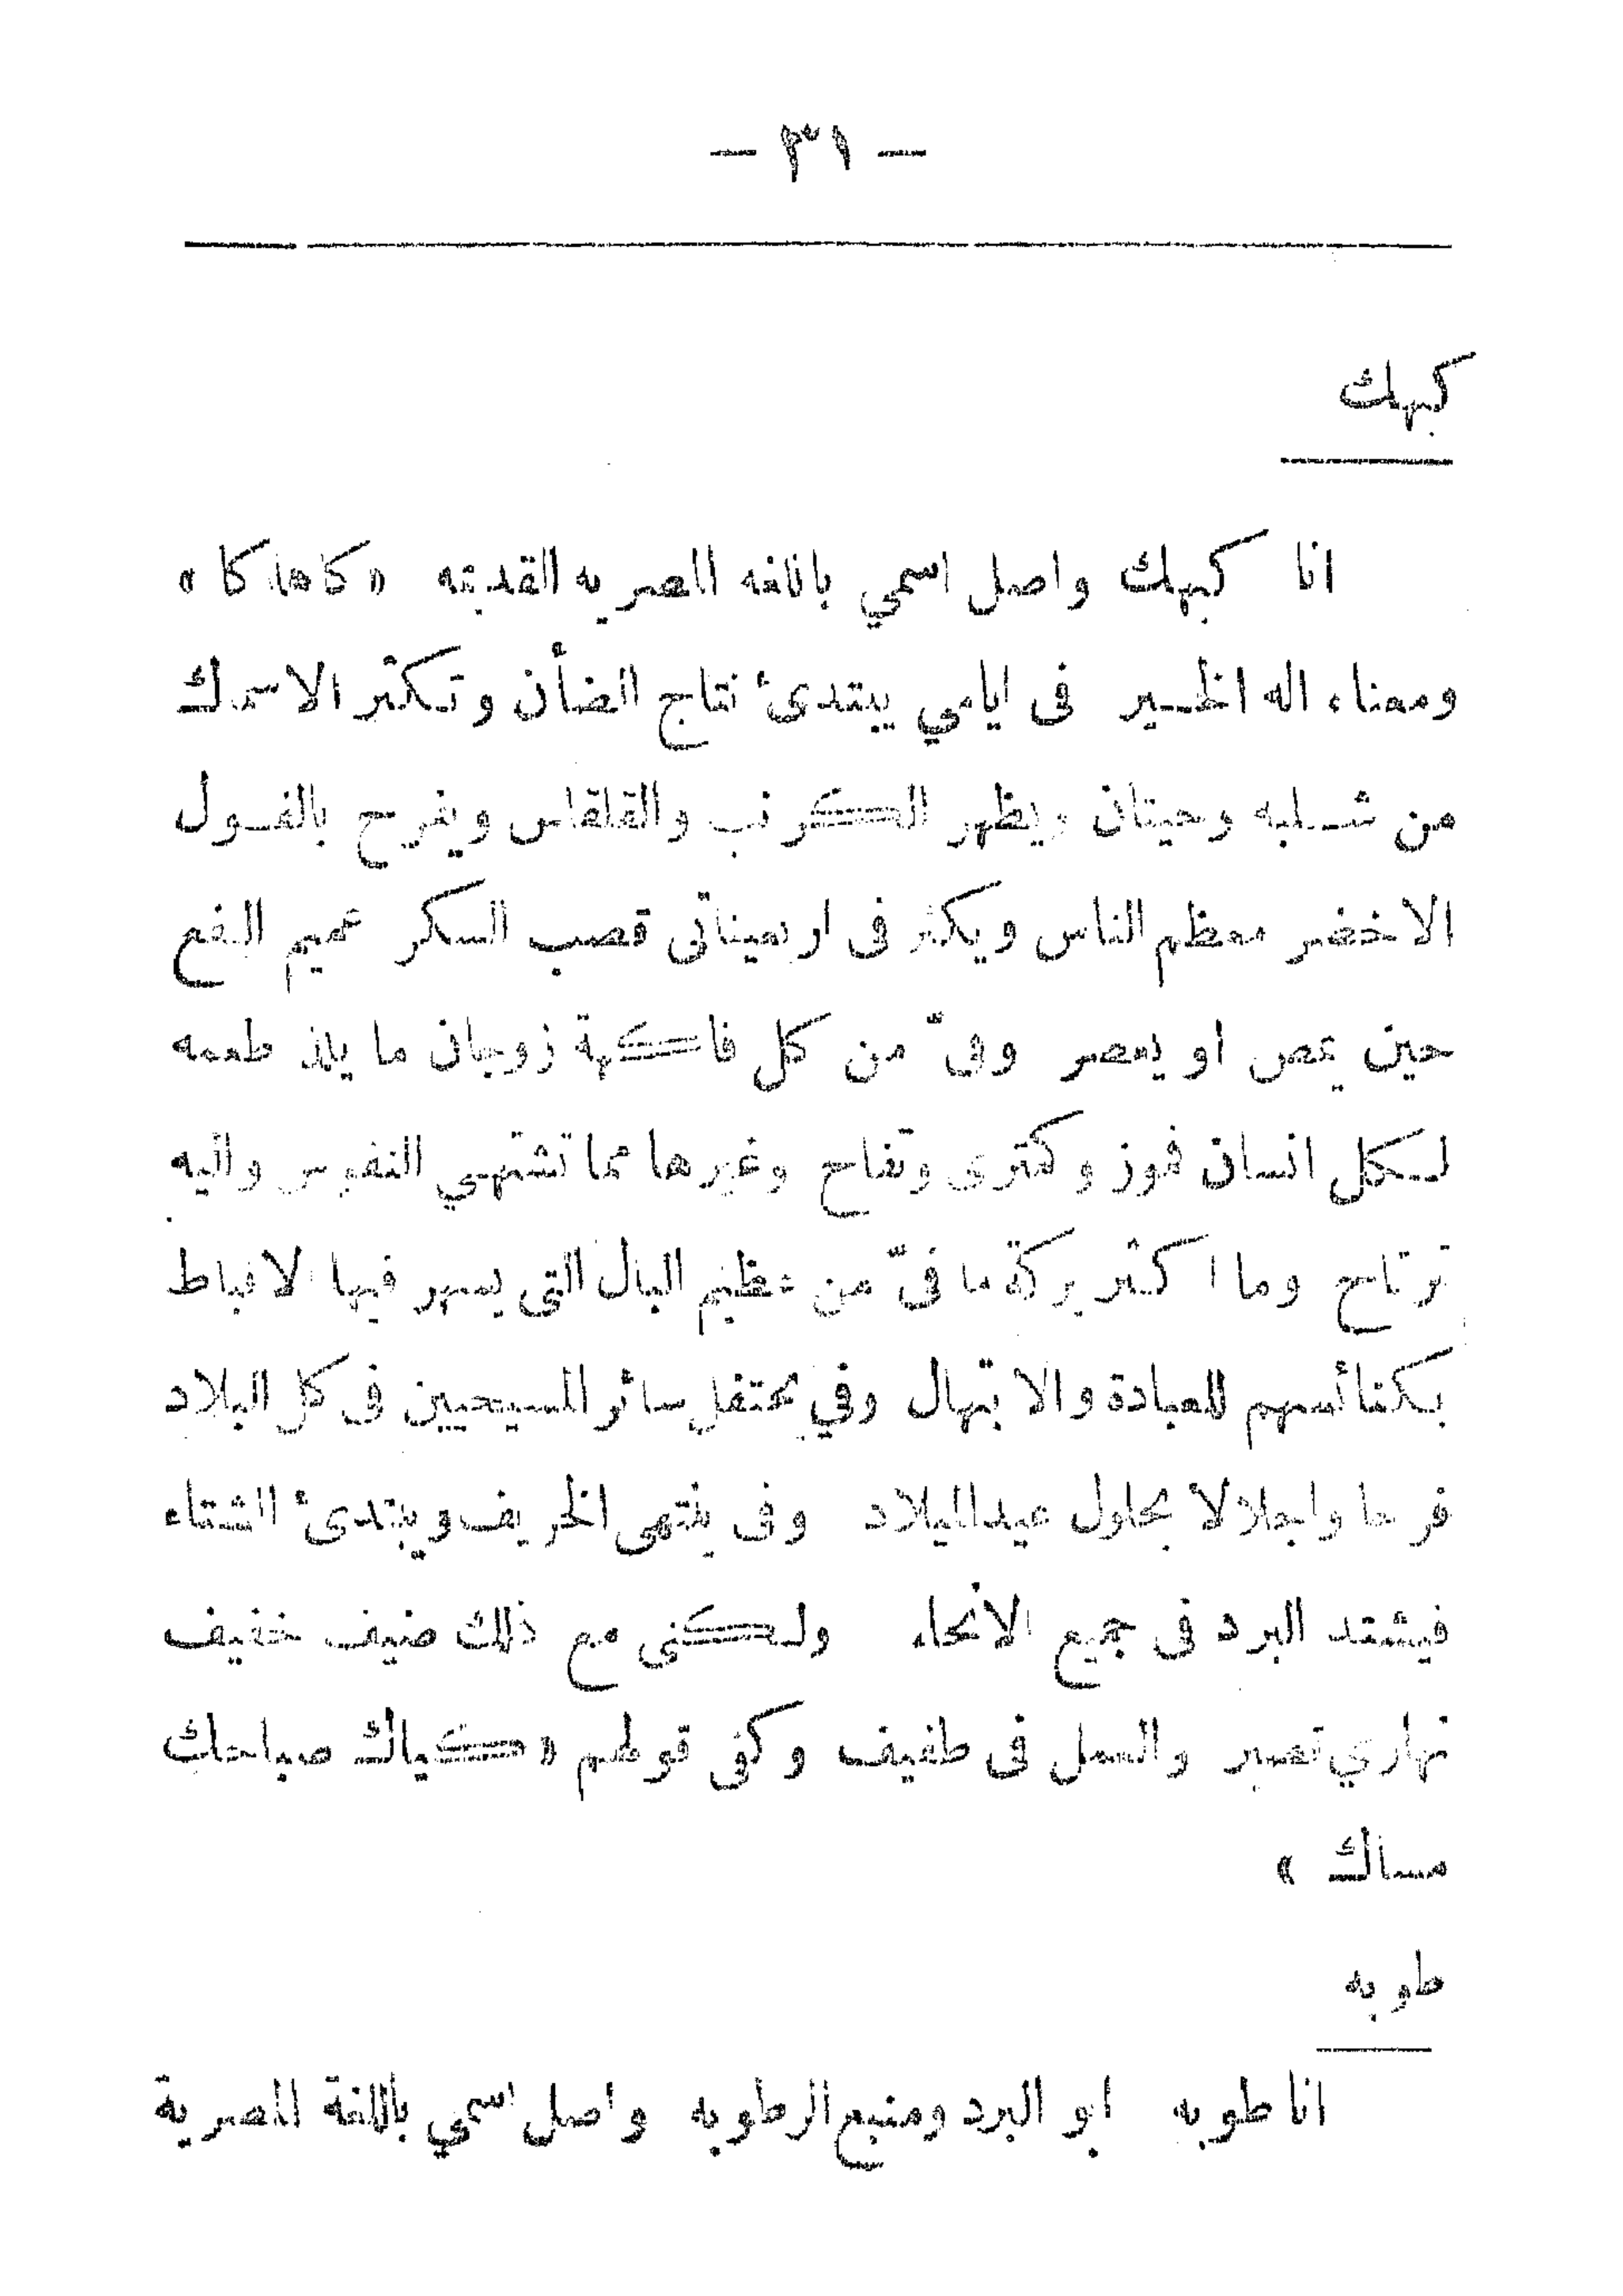 — ٣١ —
كيهك
انا كيهك واصل اسمي باللغه المصريه القديمه « كاهاكا »
ومعناه اله الخـير فى ايامي يبتدئ نتاج الضأن وتـكثر الاسماك
من شـلبه وحيتان ويظهر الكرنب والقلقاس ويفرح بالفـول
الاخضر معظم الناس ويكثر فى اربعيناتى قصب السكر عميم النفع
حين يمص او يعصر وفىّ من كل فاكهة زوجان ما يلذ طعمه
لـكل انسان فموز وكمثرى وتفاح وغيرها مما تشتهي النفوس واليه
ترتاح وما اكثر بركة ما فىّ من عظيم البال التى يسهر فيها الاقباط
بكنائسهم للعبادة والابتهال وفي يحتفل سائر المسيحيين فى كل البلاد
فرحا واجلالا بحلول عيد الميلاد وفى ينتهى الخريف ويبتدئ الشتاء
فيشتد البرد فى جميع الانحاء ولـكنى مع ذلك ضيف خفيف
نهاري قصير والعمل فى طفيف وكفى قولهم « كياك صباحك
مساك »
طوبه
انا طوبه ابو البرد ومنبع الرطوبه واصل اسمي باللغة المصرية